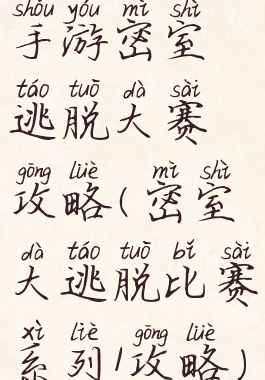 shǒu yóu mì shì
手游密室
táo tuō dà sài
逃脱大赛
gōng lüè mì shì
攻略(密室
dà táo tuō bǐ sài
大逃脱比赛
xì liè gōng lüè
系列/攻略)